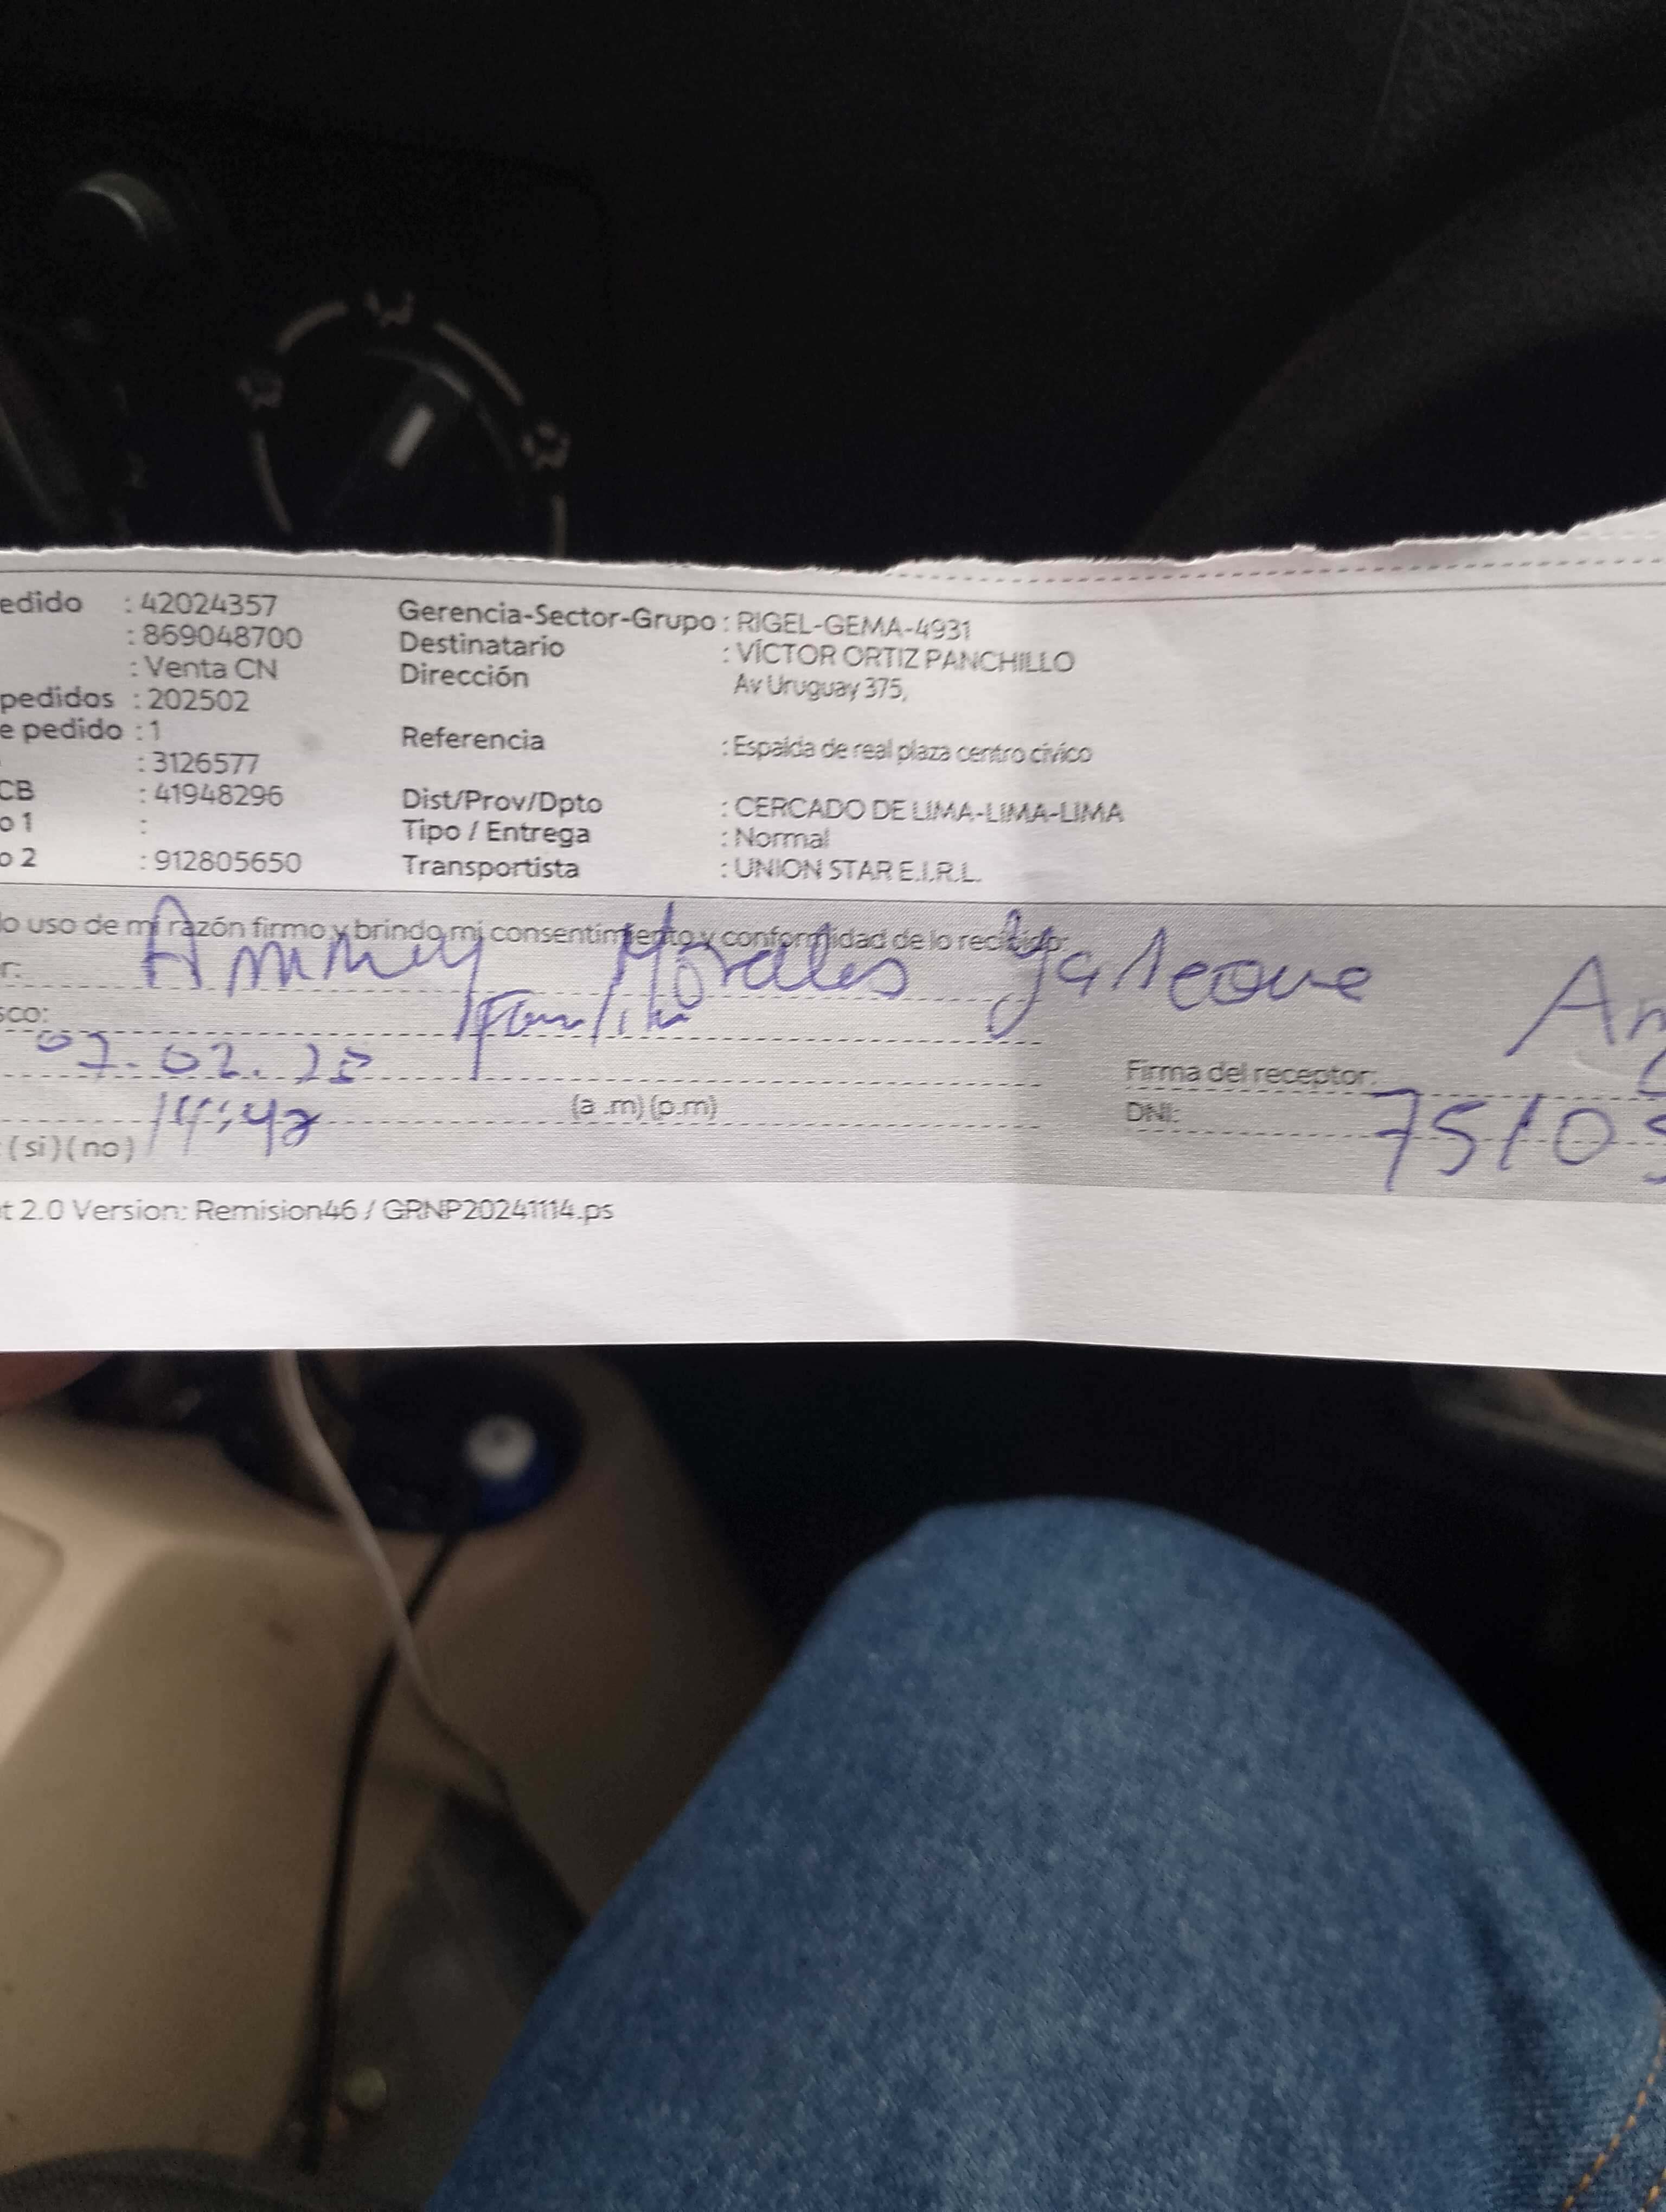 edido : 42024357 Gerencia-Sector-Grupo : RIGEL-GEMA-4931
: 869048700 Destinatario : VÍCTOR ORTIZ PANCHILLO
: Venta CN Dirección Av Uruguay 375,
pedidos : 202502
e pedido : 1 Referencia : Espalda de real plaza centro cívico
: 3126577
CB : 41948296 Dist/Prov/Dpto : CERCADO DE LIMA-LIMA-LIMA
o 1 : Tipo / Entrega : Normal
o 2 : 912805650 Transportista : UNION STAR E.I.R.L.
lo uso de mi razón firmo y brindo mi consentimiento y conformidad de lo recibido:
r: Morales
sco:
07.02.25 Firma del receptor:
(a .m) (p.m) DNI: 75105
(si) (no)
t 2.0 Version: Remision46 / GRNP20241114.ps